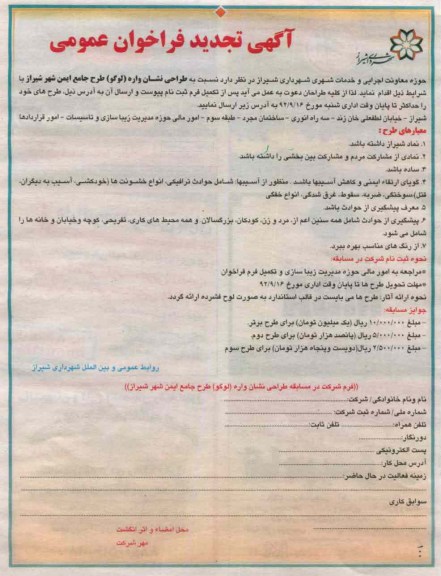 آگهی تجدید فراخوان عمومی
شهرداری شیراز
حوزه معاونت اجرایی و خدمات شهری شهرداری شیراز در نظر دارد نسبت به طراحی نشان واره (لوگو) طرح جامع ایمن شهر شیراز با
شرایط ذیل اقدام نماید. لذا از کلیه طراحان دعوت به عمل می آید پس از تکمیل فرم ثبت نام پیوست و ارسال آن به آدرس ذیل، طرح های خود
را حداکثر تا پایان وقت اداری شنبه مورخ ۹۲/۹/۱۶ به آدرس زیر ارسال نمایید.
شیراز - خیابان لطفعلی خان زند - سه راه انوری - ساختمان مجرد - طبقه سوم - امور مالی حوزه مدیریت زیبا سازی و تاسیسات - امور قراردادها
معیارهای طرح :
۱. نماد شیراز داشته باشد.
۲. نمادی از مشارکت مردم و مشارکت بین بخشی را داشته باشد.
۳. ساده باشد.
۴. گویای ارتقاء ایمنی و کاهش آسیبها باشد. منظور از آسیبها: شامل حوادث ترافیکی، انواع خشونت ها (خودکشی، آسیب به دیگران،
قتل)سوختگی، ضربه، سقوط، غرق شدگی، انواع خفگی
۵. معرف پیشگیری از حوادث باشد.
۶. پیشگیری از حوادث شامل همه سنین اعم از، مرد و زن، کودکان، بزرگسالان و همه محیط های کاری، تفریحی، کوچه وخیابان و خانه ها را
شامل می شود.
۷. از رنگ های مناسب بهره ببرد.
نحوه ثبت نام شرکت در مسابقه:
*مراجعه به امور مالی حوزه مدیریت زیبا سازی و تکمیل فرم فراخوان
*مهلت تحویل طرح ها تا پایان وقت اداری مورخ ۹۲/۹/۱۶
نحوه ارائه آثار: طرح ها می بایست در قالب استاندارد به صورت لوح فشرده ارائه گردد.
جوایز مسابقه:
- مبلغ ۱۰/۰۰۰/۰۰۰ ریال (یک میلیون تومان) برای طرح برتر.
- مبلغ ۵/۰۰۰/۰۰۰ ریال (پانصد هزار تومان) برای طرح دوم.
- مبلغ ۲/۵۰۰/۰۰۰ ریال(دویست وپنجاه هزار تومان) برای طرح سوم
روابط عمومی و بین الملل شهرداری شیراز
((فرم شرکت در مسابقه طراحی نشان واره (لوگو) طرح جامع ایمن شهر شیراز))
نام ونام خانوادگی/ شرکت:
شماره ملی/ شماره ثبت شرکت:
تلفن همراه: تلفن ثابت:
دورنگار:
پست الکترونیکی
آدرس محل کار:
زمینه فعالیت در حال حاضر:
سوابق کاری
محل امضاء و اثر انگشت
مهر شرکت